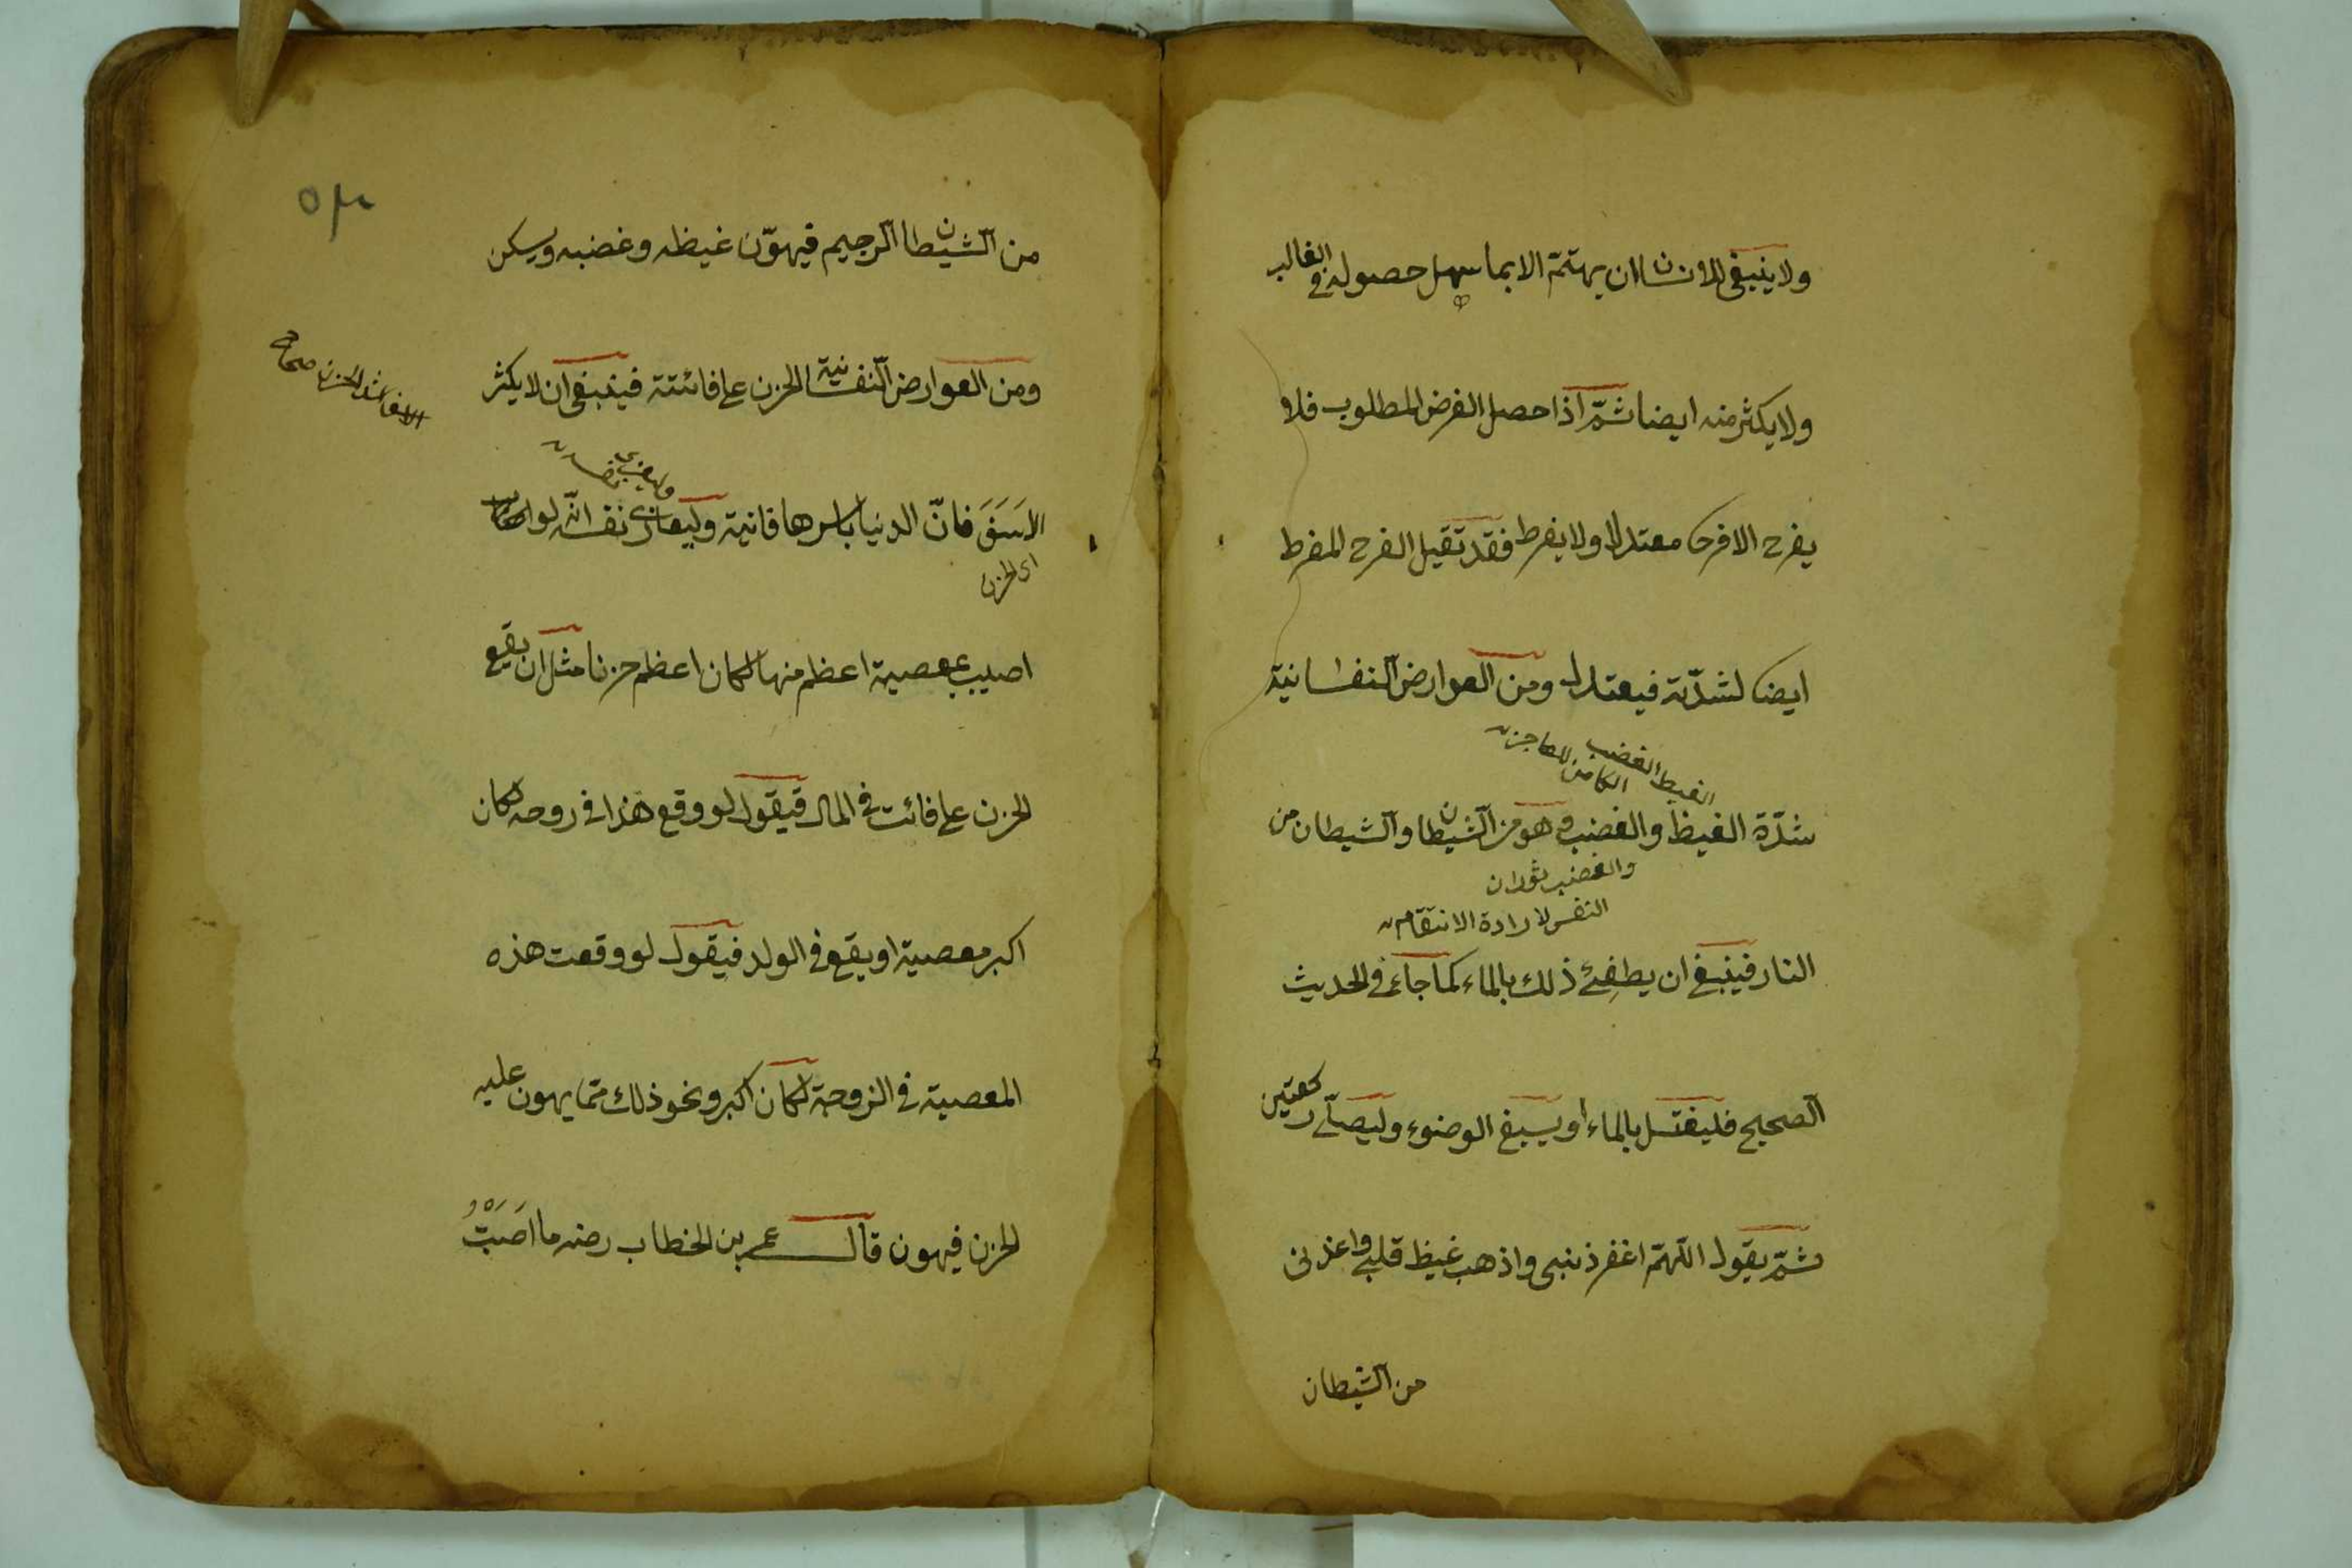 ولا ينبغى للانسان ان يهتمّ الا بما سهل حصوله فى الغالب
ولا يكثر منه ايضا ثمّ اذا حصل الغرض المطلوب فلا
يفرح الا فرحا معتدلا ولا يفرط فقد تقيل الفرح المفرط
ايضا لشدّته فيعتدل ومن العوارض النفسانية
الغيظ الغضب
الكامن للعاجز
شدّة الغيظ والغضب وهو من الشيطان والشيطان من
والغضب ثوران
النفس لارادة الانتقام
النار فينبغى ان يطفئ ذلك بالماء كما جاء فى الحديث
الصحيح فليغتسل بالماء او يسبغ الوضوء وليصلّ ركعتين
ثمّ يقول اللهمّ اغفر ذنبى واذهب غيظ قلبى واعذنى
من الشيطان
من الشيطان الرجيم فيهوّن غيظه وغضبه ويسكن
ومن العوارض النفسانية الحزن على فائتة فينبغى ان لا يكثر
الاسف اشد الحزن صحاح
الاسَفَ فانّ الدنيا باسرها فانية وليعازى نفسه انّه لو
اى الحزن
اصيب بمعصية اعظم منها لكان اعظم حزنا مثل ان يقع
الحزن على فائت فى المال فيقول لو وقع هذا فى روحه لكان
اكبر معصية او يقع فى الولد فيقول لو وقعت هذه
المعصية فى الزوجة لكان اكبر ونحو ذلك ممّا يهون عليه
الحزن فيهون قال عمر بن الخطاب رضه ما اصَبْتُ